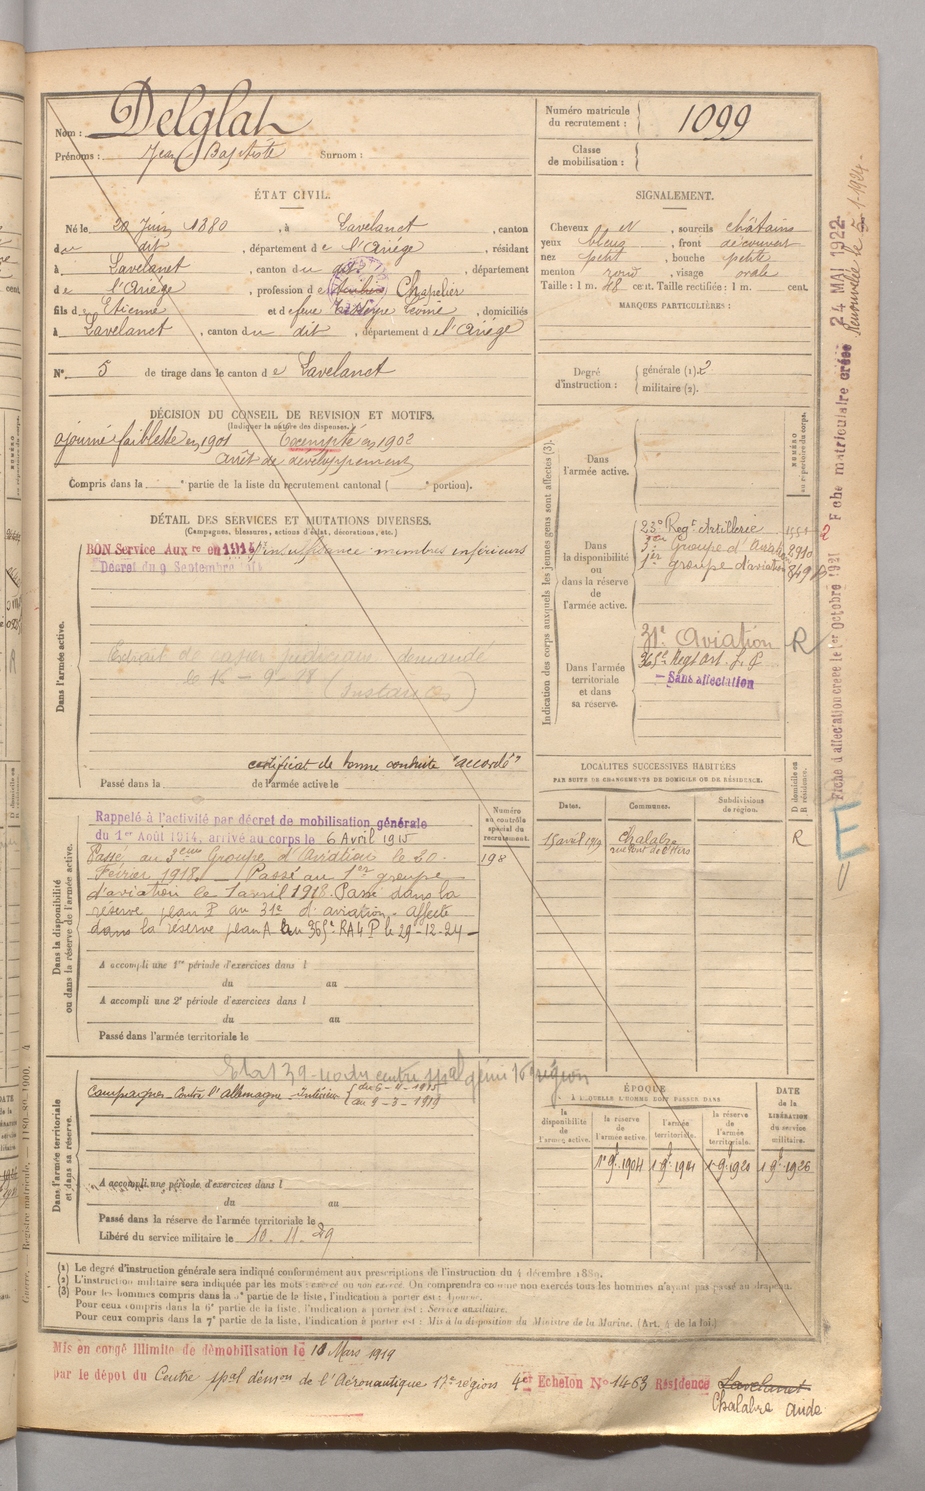 Nom : Delglat
Prénoms : Jean Baptiste Surnom :
Numéro matricule du recrutement : 1099
Classe de mobilisation :
ÉTAT CIVIL.
Né le 20 Juin 1880, à Lavelanet, canton
du dit, département de l'Ariége, résidant
à Lavelanet, canton du dit, département
de l'Ariége, profession de Chapelier
fils d Etienne et d efeue, domiciliés
à Lavelanet, canton du dit, département de l'Ariége
N° 5 de tirage dans le canton de Lavelanet
SIGNALEMENT.
Cheveux N, sourcils châtains
yeux bleus, front découvert
nez petit, bouche petite
menton rond, visage ovale
Taille : 1 m. 48 cent. Taille rectifiée : 1 m. cent.
MARQUES PARTICULIÈRES :
Degré d'instruction : générale (1). 2
militaire (2).
DÉCISION DU CONSEIL DE REVISION ET MOTIFS.
(Indiquer la nature des dispenses.)
ajourné faiblesse en 1901 Exempté en 1902
arrêt de développement
Compris dans la e partie de la liste du recrutement cantonal ( e portion).
DÉTAIL DES SERVICES ET MUTATIONS DIVERSES.
(Campagnes, blessures, actions d'éclat, décorations, etc.)
BON Service Aux re en 1914 insuffisance membres inférieurs
Décret du 9 Septembre 1914
Dans l'armée active.
Extrait de casier judiciaire demandé
le 16 - 9 - 18
certificat de bonne conduite "accordé"
Passé dans la de l'armée active le
Indication des corps auxquels les jeunes gens sont affectés (3).
NUMÉRO au répertoire du corps.
Dans l'armée active.
Dans la disponibilité ou dans la réserve de l'armée active.
23e Regt Artillerie
3e Groupe d'Aviation 2910
1er groupe d'aviation
Dans l'armée territoriale et dans sa réserve.
31e Aviation R
365e Regt Art. L. P
- Sans affectation
LOCALITÉS SUCCESSIVES HABITÉES
PAR SUITE DE CHANGEMENTS DE DOMICILE OU DE RÉSIDENCE.
Dates. Communes. Subdivisions de région. D domicile ou R résidence.
15 avril 1919 Chalabre R
rue Pont de l'Hers
Dans la disponibilité ou dans la réserve de l'armée active.
Numéro au contrôle spécial du recrutement.
198
Rappelé à l'activité par décret de mobilisation générale
du 1er Août 1914, arrivé au corps le 6 Avril 1915
Passé au 3ème Groupe d'Aviation le 20
Février 1918. Passé au 1er groupe
d'aviation le 1 avril 1918. Passé dans la
réserve plan P au 31e d'aviation. Affecté
dans la réserve plan A au 365e RA L P le 29-12-24
A accompli une 1re période d'exercices dans l
du au
A accompli une 2e période d'exercices dans l
du au
Passé dans l'armée territoriale le
Dans l'armée territoriale et dans sa réserve.
Campagnes - Contre l'allemagne - Intérieur du 6-4-1915
au 9-3-1919
A accompli une période d'exercices dans l
du au
Passé dans la réserve de l'armée territoriale le
Libéré du service militaire le 10. 11. 29
ÉPOQUE
À LAQUELLE L'HOMME DOIT PASSER DANS
la disponibilité de l'armée active.
la réserve de l'armée active.
l'armée territoriale.
la réserve de l'armée territoriale.
DATE de la LIBÉRATION du service militaire.
(1) Le degré d'instruction générale sera indiqué conformément aux prescriptions de l'instruction du 4 décembre 1889.
(2) L'instruction militaire sera indiquée par les mots : exercé ou non exercé. On comprendra comme non exercés tous les hommes n'ayant pas passé au drapeau.
(3) Pour les hommes compris dans la 5e partie de la liste, l'indication à porter est : Ajourné.
Pour ceux compris dans la 6e partie de la liste, l'indication à porter est : Service auxiliaire.
Pour ceux compris dans la 7e partie de la liste, l'indication à porter est : Mis à la disposition du Ministre de la Marine. (Art. 4 de la loi.)
Mis en congé illimité de démobilisation le 10 Mars 1919
par le dépôt du Centre spal démon de l'Aéronautique 17e région 4er Echelon N° 1463 Résidence Lavelanet
Chalabre Aude
Fiche d'affectation créée le 1er Octobre 1921 Fiche matriculaire créée 24 MAI 1922
E